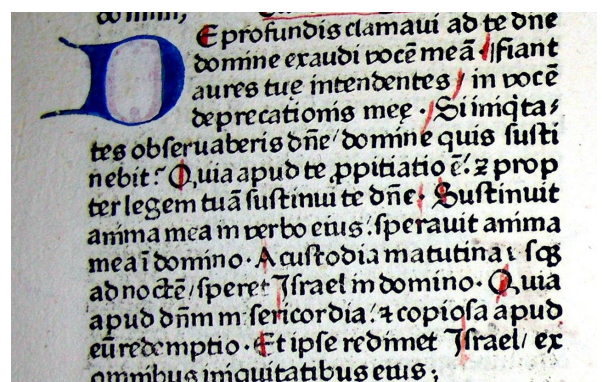 DE profundis clamaui ad te dn̄e
domine exaudi vocē meā. fiant
aures tue intendentes/ in vocē
deprecationis meę. Si iniq̇ta⸗
tes obseruaberis dn̄e/ domine quis susti
nebit? Quia apud te ꝓpitiatio ē: ⁊ prop
ter legem tuā sustinui te dn̄e: Sustinuit
anima mea in verbo eius: sperauit anima
mea ī domino. A custodia matutina vsqꝫ
ad noctē/ speret Israel in domino. Quia
apud dn̄m misericordia: ⁊ copiosa apud
eū redemptio. Et ipse redimet Israel/ ex
omnibus iniquitatibus eius;